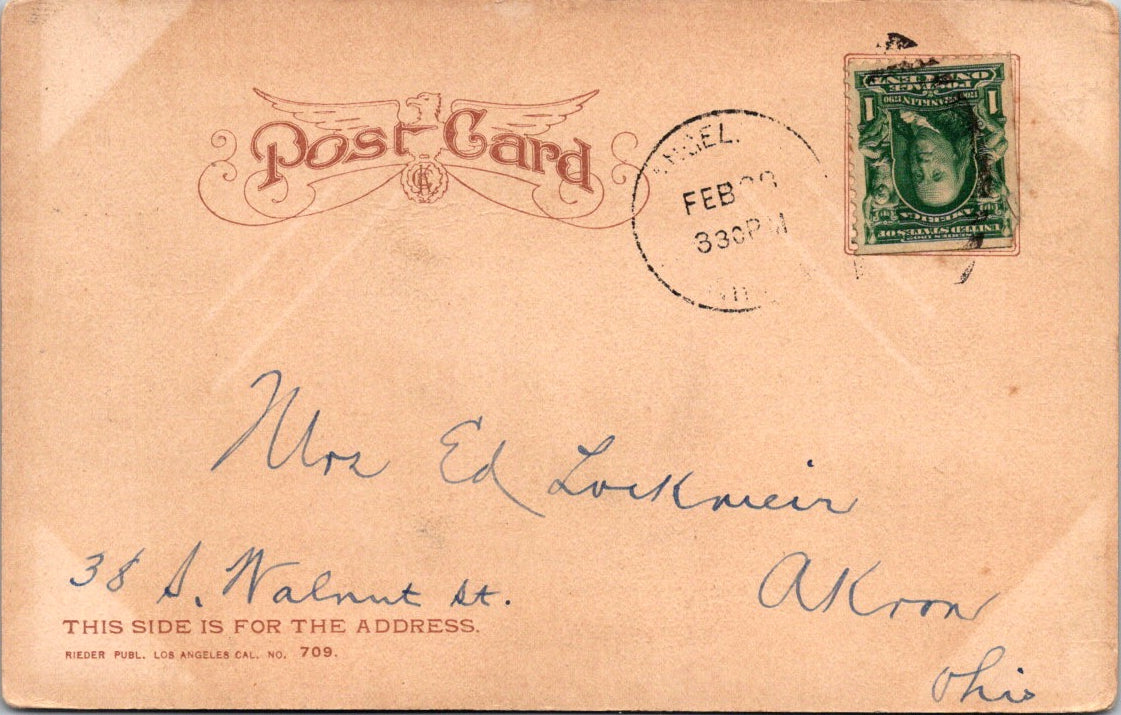 Post Card
FEB
330PM
ONE CENT 1
POSTAGE
FRANKLIN
1 1
SERIES 1902
UNITED STATES OF
AMERICA
Mrs Ed Lockmeir
38 S. Walnut St.
Akron
Ohio
THIS SIDE IS FOR THE ADDRESS.
RIEDER PUBL. LOS ANGELES CAL. NO. 709.